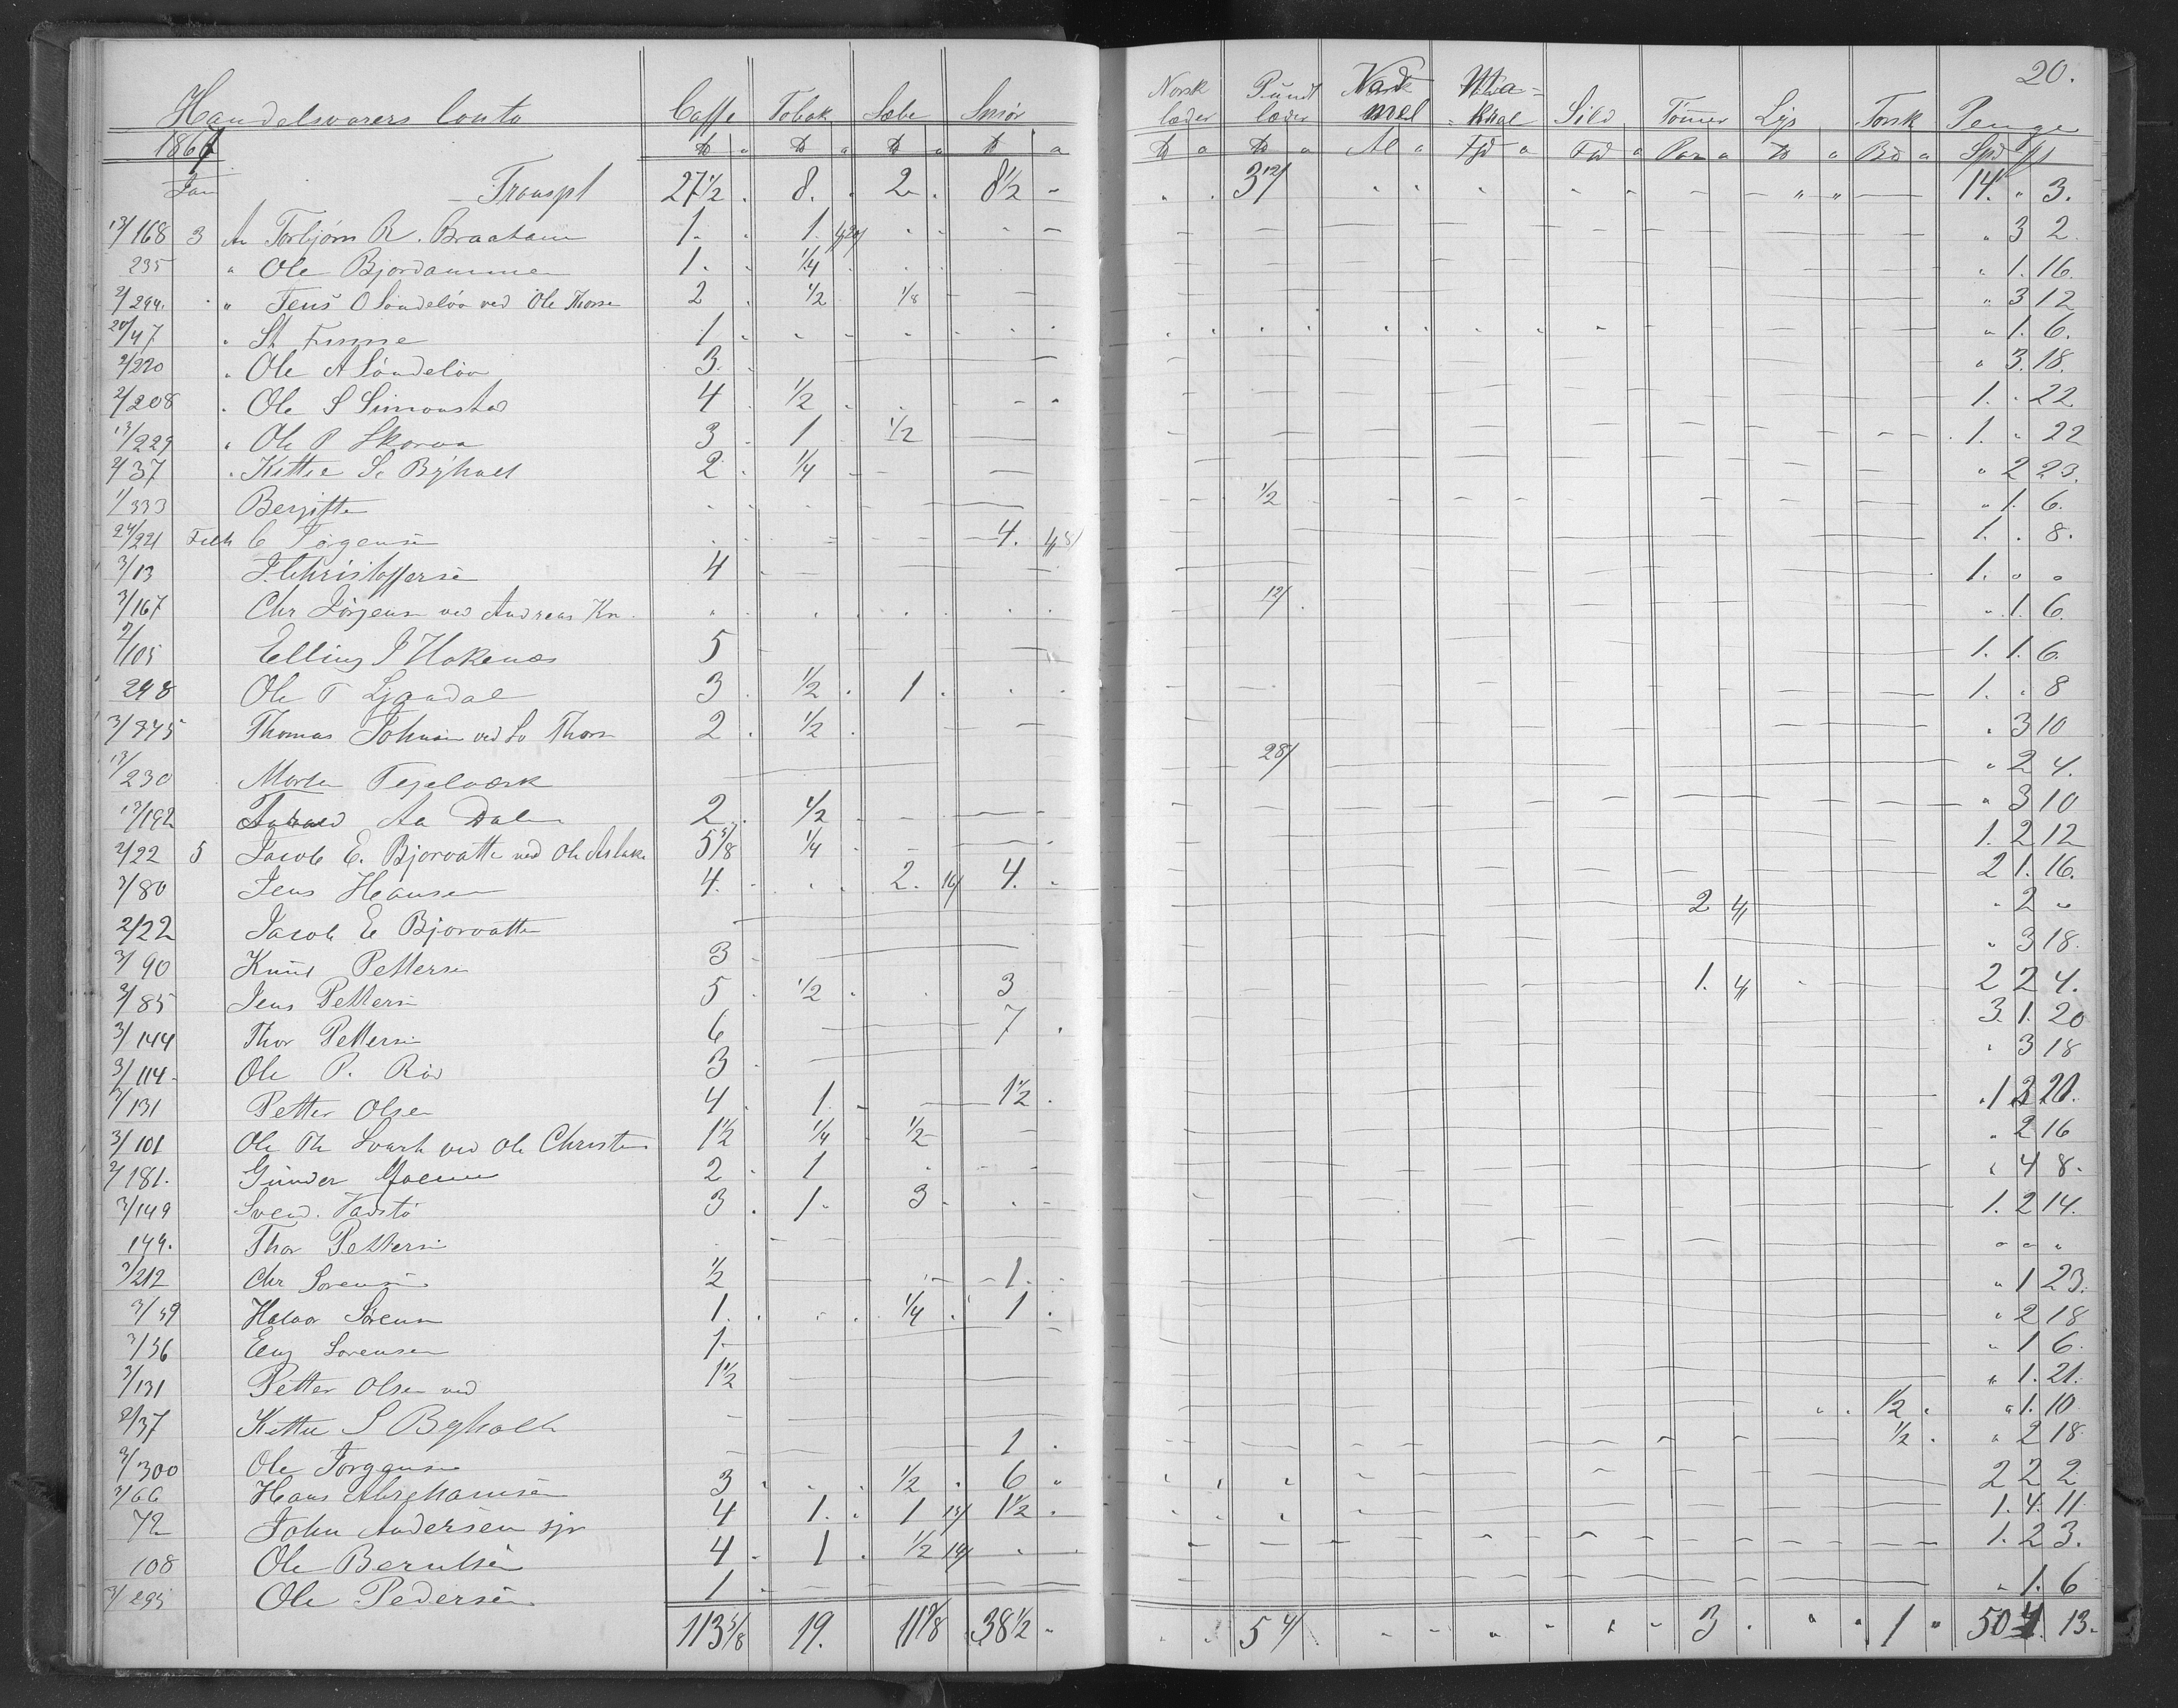 20.
Handelsvarers Conto Caffe Tobak Sæbe Smör Norsk læder Pundt læder Vad mel Sild Tömmer Lys Torsk Penge
1867 ℔ ℔ ℔ ℔ ℔ ℔ Al ℔ Spd
Jan Transpt 27 1/2 8. 2 8 1/2 3 12/ 14. " 3.
13/168 3 An Torbjörn R. Braatane 1. 1. " 3 2.
235 " Ole Bjordammen 1. 1/4 " 1. 16.
2/294. " Jens O Söndelöv ved Ole Thorse 2 1/2 1/8 " 3 12
20/47 " St Finne 1 " 1. 6.
2/220 " Ole A Söndelöv 3. " 3. 18.
2/208 " Ole S Simonstad 4 1/2 1. " 22
13/229 " Ole P Skorva 3 1 1/2 1. " 22
2/37 " Kittie S. Byholt 2 1/4 " 2 23.
1/333 Bergitte 1/2 " 1. 6.
24/221 C Jörgensen 4. 1. . 8.
3/13 J. Christoffersen 4 1. " "
3/167 Chr Jörgensen ved Andreas Kn. 12/ " 1. 6.
2/105 Elling J Hokenæs 5 1. 1. 6.
248 Ole T Ljøndal 3 1/2 1 1. " 8
3/345 Thomas Johnsen ved So Thors 2 1/2 " 3 10
13/230 Morten Tegelværk 28/ " 2 4.
13/192 Aa Dale 2 1/2 " 3 10
2/22 5 Jacob E. Bjorvatten ved Ole Aslaks 5 5/8 1/4 1. 2 12
3/80 Jens Hansen 4. 2. 16/ 4. 2 1. 16.
2/22 Jacob E Bjorvatten 2 " 2 "
3/90 Knud Pettersen 3 " 3 18.
3/85 Jens Pettersen 5 1/2 3 1. 2 2 4.
3/144 Thor Pettersen 6 7 3. 1. 20
3/114 Ole P. Röd 3 " 3 18
3/131 Petter Olsen 4 1. 1 1/2 1 20.
3/101 Ole Th Svart ved Ole Christen 1 1/2 1/4 1/2 " 2 16
2/181. Gunder Moene 2 1 " 4 8.
3/149 Svend. Vadstö 3 1 3 1. 2 14.
144. Thor Pettersen " " "
3/212 Chr Sorensen 1/2 1. " 1 23.
3/39 Halvor Sörensen 1. 1/4 1 " 2 18
3/36 Eng Sorensen 1 " 1 6.
3/131 Petter Olsen ved 1 1/2 " 1. 21.
2/37 Kittie S Byholt 1/2 " 1. 10
3/300 Ole Jörgensen 1 1/2 " 2 18
3/66 Hans Abrahamsen 3 1/2 6 2 2 2
72 John Andersen sjr 4 1. 1 13/ 1 1/2 1. 4. 11
108 Ole Berntsen 4 1 1/2 14/ 1. 2 3.
3/295 Ole Pedersen 1 " 1. 6
113 5/8 19. 38 1/2 5 4/ 3 1 50 4 13.